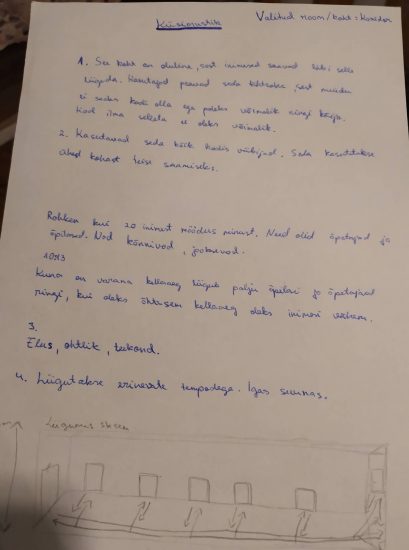 Küsimustik
Valitud ruum/koht: koridor
1. See koht on oluline, sest inimesed saavad läbi selle
liiguda. Kasutajad peavad seda tähtsaks, sest muidu
ei saaks kooli olla ega poleks võimalik ringi käia.
Kool ilma selleta ei oleks võimalik.
2. Kasutavad seda kõik koolis viibijad. Seda kasutatakse
ühest kohast teise saamiseks.
Rohkem kui 20 inimest möödus minust. Need olid õpetajad ja
õpilased. Nad kõnnivad, jooksevad.
Kuna on varane kellaaeg liigub palju õpilasi ja õpetajaid
ringi, kui oleks õhtusem kellaaeg oleks inimesi vähem.
3.
Elus, ohtlik,
4. Liigutakse erinevate tempodega. Igas suunas.
Liigumis skeem